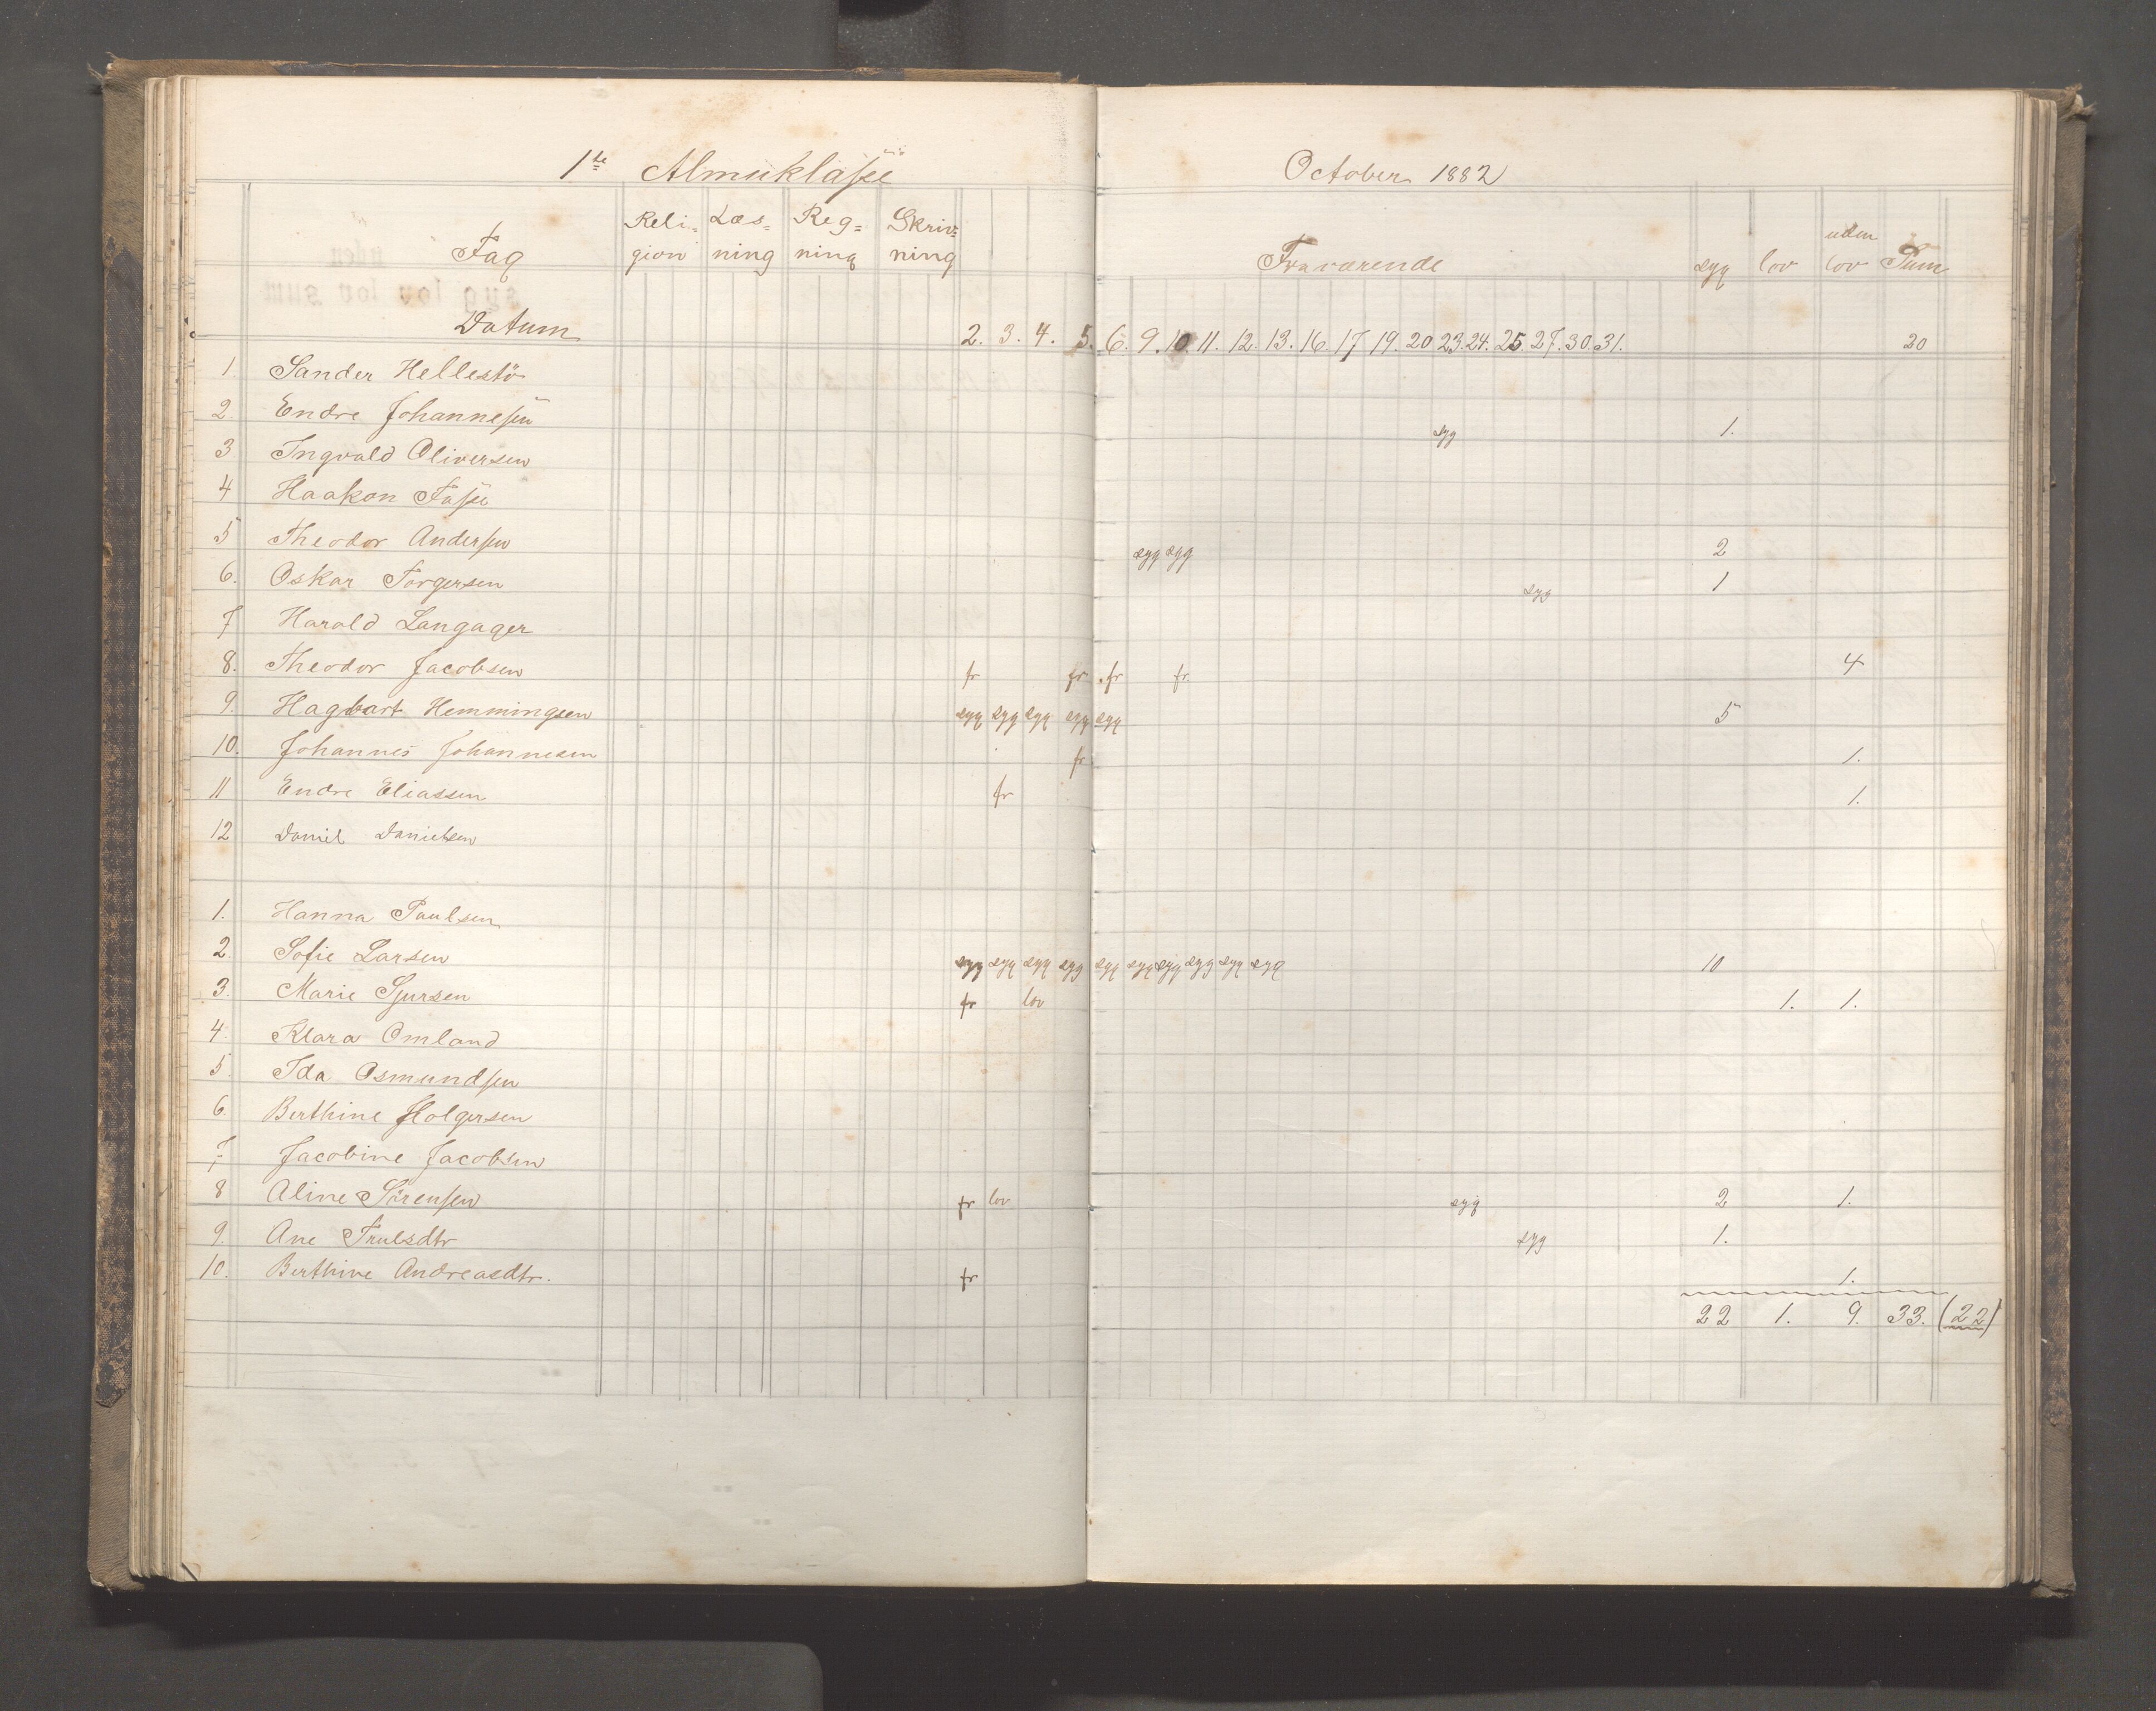 1ste Almueklasse October 1882
Fag Reli= gion Læs= ning Reg= ning Skriv= ning Fraværende syg lov uden lov Sum
Datum 2. 3. 4. 5. 6. 9. 10. 11. 12. 13. 16. 17 19. 20 23. 24. 25. 27. 30. 31. 20
1. Sander Hellestö
2. Endre Johannesen syg 1.
3 Ingvald Oliversen
4 Haakon Fasse
5 Theodor Andersen syg syg 2
6. Oskar Torgersen syg 1
7 Harald Langager
8. Theodor Jacobsen fr fr fr fr. 4
9. Hagbart Hemmingsen syg syg syg syg syg 5
10. Johannes Johannesen fr 1.
11 Endre Eliassen fr 1.
12 Daniel Danielsen
1. Hanna Paulsen
2. Sofie Larsen syg syg syg syg syg syg syg syg syg syg 10
3. Marie Sjursen fr lov 1. 1.
4. Klara Omland
5. Ida Osmundsen
6. Berthine Holgersen
7 Jacobine Jacobsen
8 Aline Sörensen fr lov syg 2 1.
9. Ane Trulsdtr syg 1.
10. Berthine Andreasdtr. fr 1.
22 1. 9. 33. (22)